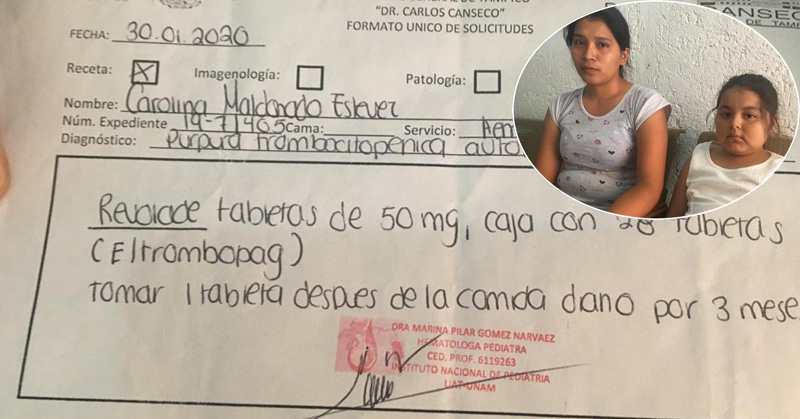 "DR. CARLOS CANSECO"
FORMATO UNICO DE SOLICITUDES
FECHA: 30.01.2020
Receta: Imagenología: Patología:
Nombre: Carolina Maldonado Estever
Núm. Expediente 19-71465 Cama: Servicio:
Diagnóstico: Purpura trombocitopenica auto
Revolade tabletas de 50 mg, caja con 28 tabletas
(Eltrombopag)
Tomar 1 tableta despues de la comida diario por 3 mese
DRA MARINA PILAR GOMEZ NARVAEZ
HEMATOLOGA PEDIATRA
CED. PROF. 6119263
INSTITUTO NACIONAL DE PEDIATRIA
UAT-UNAM